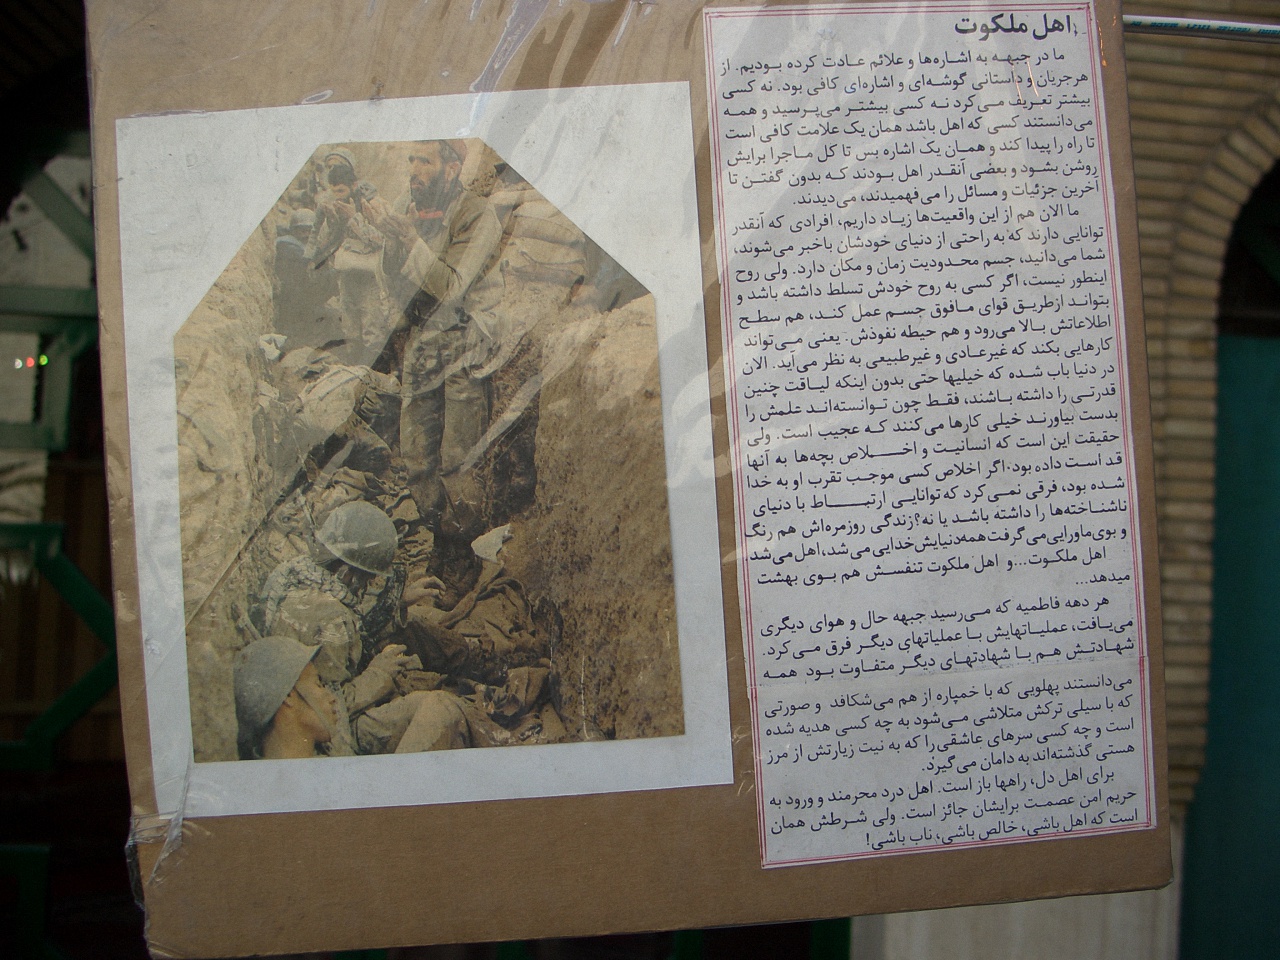 اهل ملکوت
ما در جبهـه به اشـاره‌ها و علائم عـادت کرده بـودیم. از
هرجریان و داستانی گوشه‌ای و اشاره‌ای کافی بود. نه کسی
بیشتر تعریف می‌کرد نه کسی بیشتر می‌پرسید و همه
می‌دانستند کسی که اهل باشد همان یک علامت کافی است
تا راه را پیدا کند و همـان یک اشاره بس تا کل ماجرا برایش
روشن بشود و بعضی آنقـدر اهل بـودند کـه بدون گفتن تا
آخرین جزئیات و مسائل را می‌فهمیدند، می‌دیدند.
ما الان هم از این واقعیت‌ها زیـاد داریم، افرادی که آنقدر
توانایی دارند که به راحتی از دنیای خودشان باخبر می‌شوند،
شما می‌دانید، جسم محـدودیت زمان و مکان دارد. ولی روح
اینطور نیست، اگر کسی به روح خودش تسلط داشته باشد و
بتواند ازطریـق قوای مـافوق جسـم عمل کنـد، هـم سطـح
اطلاعاتش بـالا می‌رود و هم حیطه نفوذش. یعنی مـی‌تواند
کارهایی بکند که غیرعـادی و غیرطبیعی به نظر می‌آید. الان
در دنیا باب شده که خیلیها حتی بدون اینکه لیـاقت چنین
قدرتـی را داشته بـاشند، فقـط چون تـوانسته‌انـد علمش را
بدست بیاورند خیلی کارها می‌کنند کـه عجیب است. ولی
حقیقت این است که انسانیـت و اخـــلاص بچه‌ها به آنها
قد است داده بود. اگر اخلاص کسی موجب تقرب او به خدا
شده بود، فرقی نمی‌کرد که توانایی ارتبـــاط با دنیای
ناشناخته‌ها را داشته باشد یا نه؟زندگی روزمره‌اش هم رنگ
و بوی‌ماورایی‌می‌گرفت‌همه‌دنیایش‌خدایی‌می‌شد،اهل‌می‌شد،
اهل ملکـوت...و اهل ملکوت تنفسـش هم بـوی بهشت
میدهد...
هر دهه فاطمیه که می‌رسید جبهه حال و هوای دیگری
می‌یـافت، عملیـاتهایش بـا عملیاتهای دیگـر فرق می‌کرد.
شهـادتـش هم بـا شهادتهای دیگر متفاوت بـود همـه
می‌دانستند پهلویی که با خمپاره از هم می‌شکافد و صورتی
که با سیلی ترکش متلاشی می‌شود به چه کسی هدیه شده
است و چه کسی سرهای عاشقی‌را که به نیت زیارتش از مرز
هستی گذشته‌اند به دامان می‌گیرد.
برای اهل دل، راهها باز است. اهل درد محرمند و ورود به
حریم امن عصمـت برایشان جائز است. ولی شـرطش همان
است که اهل باشی، خالص باشی، ناب باشی!